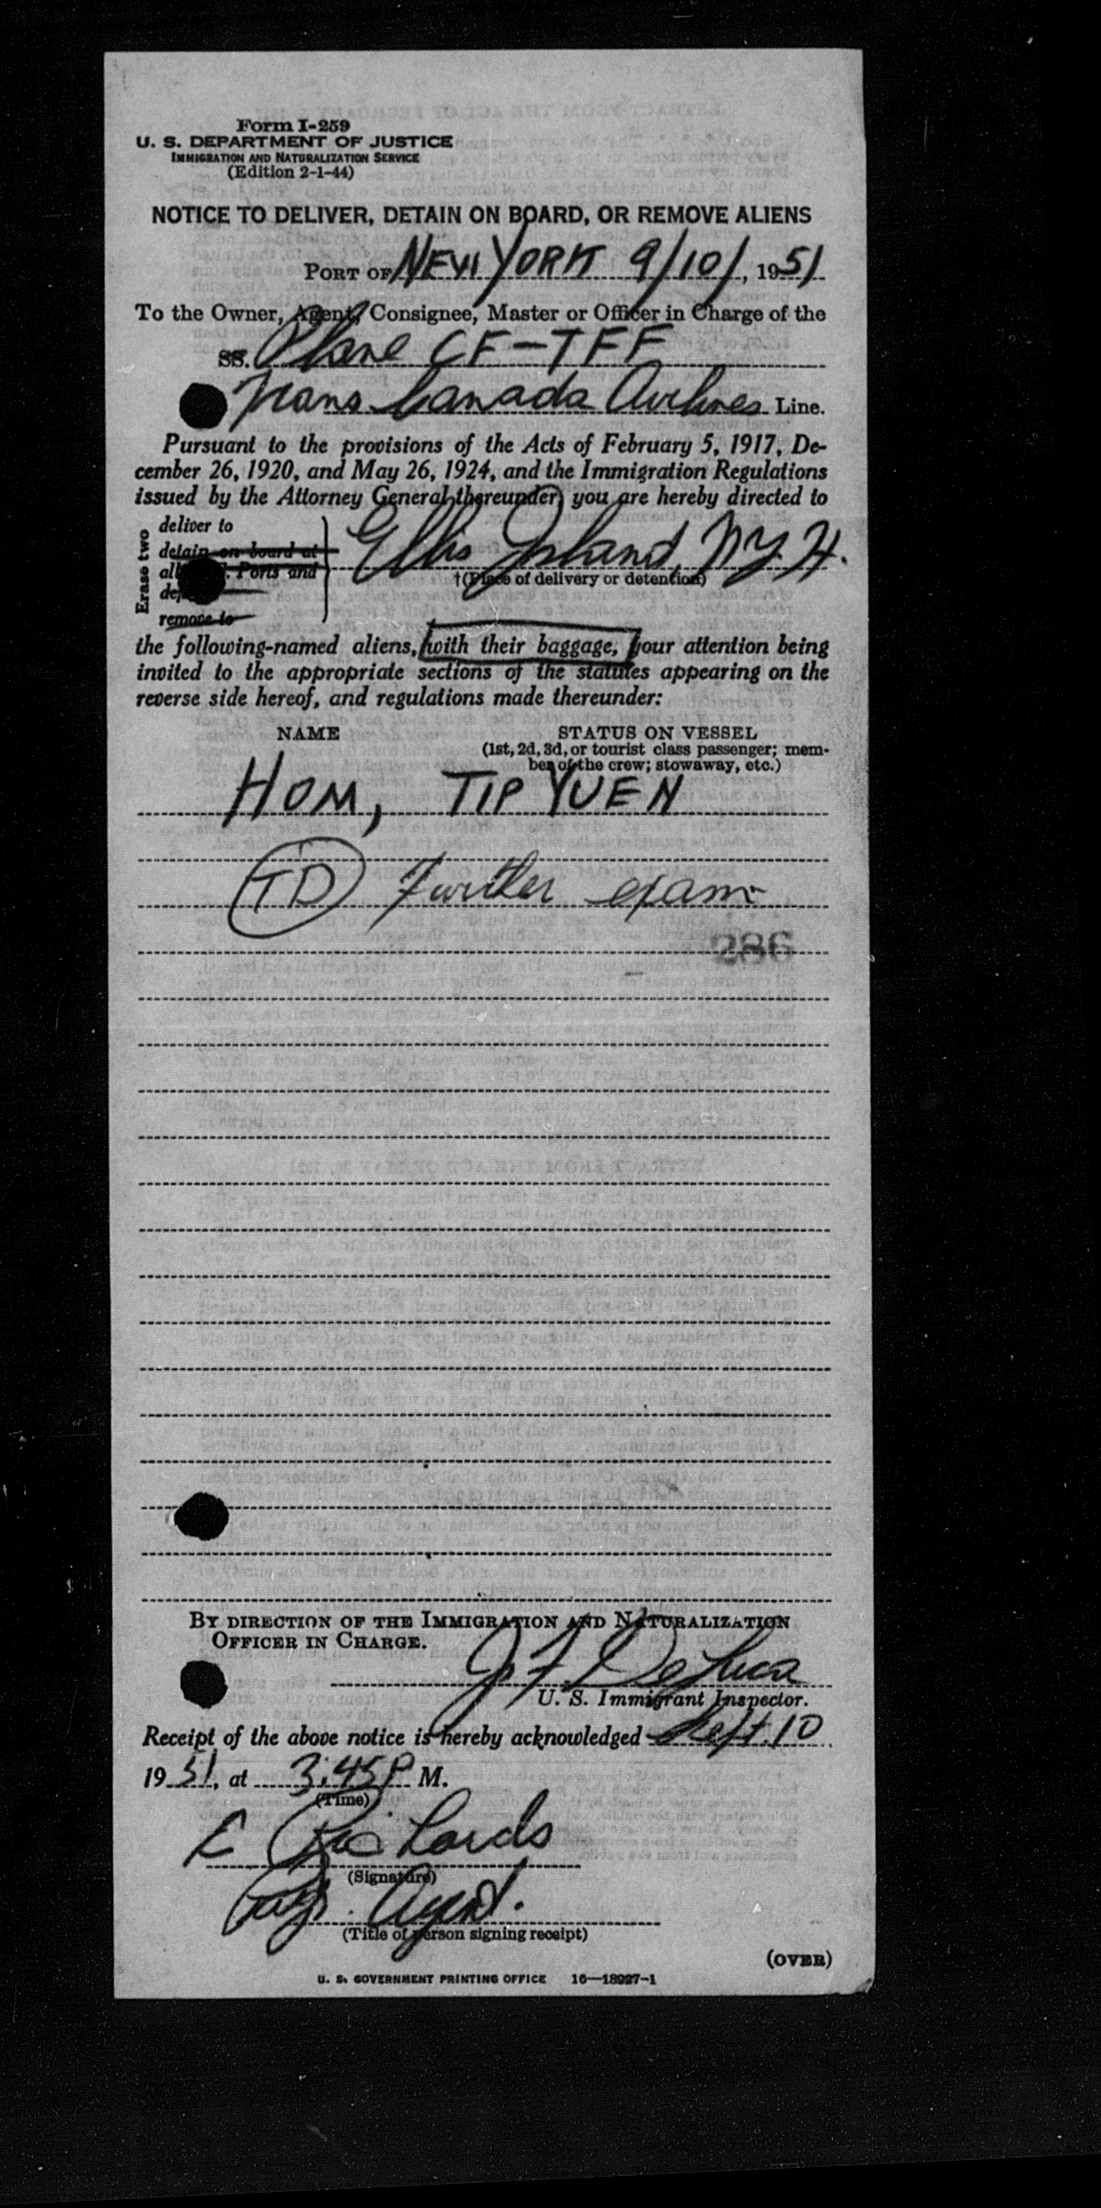 Form I-259
U. S. DEPARTMENT OF JUSTICE
IMMIGRATION AND NATURALIZATION SERVICE
(Edition 2-1-44)
NOTICE TO DELIVER, DETAIN ON BOARD, OR REMOVE ALIENS
PORT OF NEW YORK 9/10/, 1951
To the Owner, Agent, Consignee, Master or Officer in Charge of the
SS. Plane CF-TFF
Trans Canada Airlines Line.
Pursuant to the provisions of the Acts of February 5, 1917, De-
cember 26, 1920, and May 26, 1924, and the Immigration Regulations
issued by the Attorney General thereunder, you are hereby directed to
Erase two
deliver to
detain on board at
Ports and
remove to
Ellis Island, N.Y.H.
†(Place of delivery or detention)
the following-named aliens, with their baggage, your attention being
invited to the appropriate sections of the statutes appearing on the
reverse side hereof, and regulations made thereunder:
NAME STATUS ON VESSEL
(1st, 2d, 3d, or tourist class passenger; mem-
ber of the crew; stowaway, etc.)
HOM, TIP YUEN
TD Further exam
286
BY DIRECTION OF THE IMMIGRATION AND NATURALIZATION
OFFICER IN CHARGE.
J. F. DeLuca
U. S. Immigrant Inspector.
Receipt of the above notice is hereby acknowledged Sept. 10
1951, at 3:45 P M.
(Time)
E Richards
(Signature)
Agent.
(Title of person signing receipt)
(OVER)
U. S. GOVERNMENT PRINTING OFFICE 16—18927-1